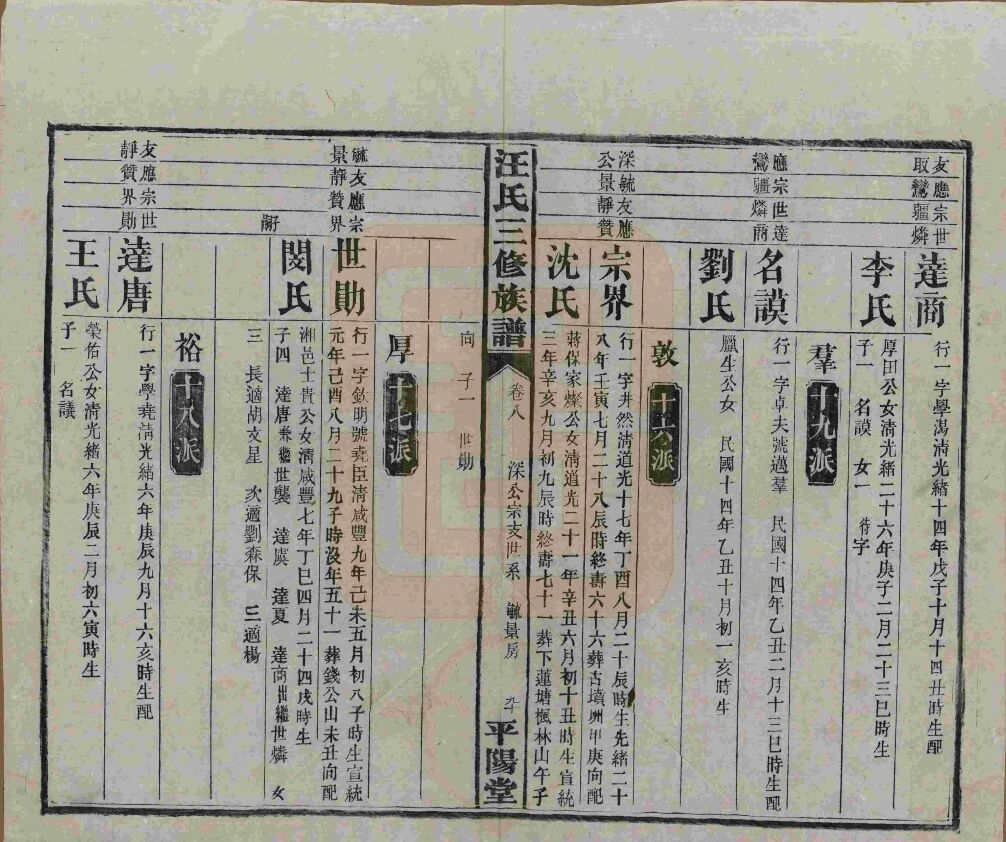 友應宗世
取鸞疆燐
達商
行一字學潟清光緒十四年戊子十月十四丑時生配
李氏
厚田公女清光緒二十六年庚子二月二十三巳時生
子一 名謨 女一 待字
羣 十九派
應宗世達
鸞疆燐商
名謨
行一字卓夫號邁羣 民國十四年乙丑二月十三巳時生配
劉氏
臘生公女 民國十四年乙丑十月初一亥時生
敦 十六派
深毓友應
公景靜贊
宗界
行一字井然清道光十七年丁酉八月二十辰時生光緒二十
八年壬寅七月二十八辰時終壽六十六葬古墳坤甲庚向配
沈氏
蔣保家燦公女清道光二十一年辛丑六月初十丑時生宣統
三年辛亥九月初九辰時終壽七十一葬下蓮塘楓林山午子
汪氏三修族譜
卷八
深公宗支世系 毓景房
平陽堂
向 子一 世勛
厚 十七派
毓友應宗
景靜贊界
世勛
行一字欽明號堯臣清咸豐九年己未五月初八子時生宣統
元年己酉八月二十九子時沒年五十一葬錢公山未丑向配
閔氏
湘邑士貴公女清咸豐七年丁巳四月二十四戌時生
子四 達唐兼繼世龑 達虞 達夏 達商出繼世燐 女
三 長適胡文星 次適劉森保 三適楊
裕 十八派
友應宗世
靜贊界勛
達唐
行一字學堯清光緒六年庚辰九月十六亥時生配
王氏
榮佑公女清光緒六年庚辰二月初六寅時生
子一 名議